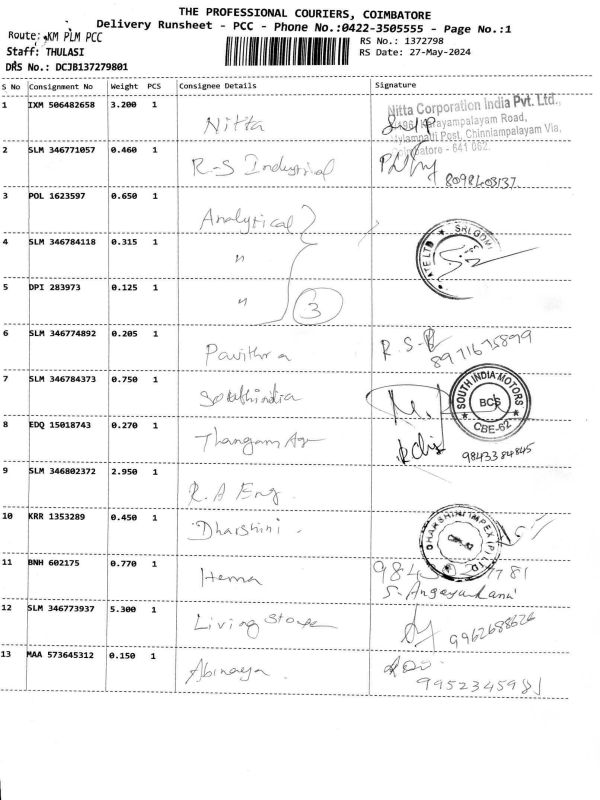 THE PROFESSIONAL COURIERS, COIMBATORE
Delivery Runsheet - PCC - Phone No.:0422-3505555 - Page No.:1
Route: KM PLM PCC
RS No.: 1372798
Staff: THULASI
RS Date: 27-May-2024
DRS No.: DCJB137279801
S No Consignment No Weight PCS Consignee Details Signature
1 IXM 506482658 3.200 1 Nitta
Nitta Corporation India Pvt. Ltd.,
Karayampalayam Road,
Post, Chinniampalayam Via,
Coimbatore - 641 062.
2 SLM 346771057 0.460 1 R-S Industrial
8098403137
3 POL 1623597 0.650 1 Analytical
4 SLM 346784118 0.315 1 "
5 DPI 283973 0.125 1 "
3
6 SLM 346774892 0.205 1 Pavithra R.S-
8971675899
7 SLM 346784373 0.750 1 Southindia
SOUTH INDIA MOTORS
BCS
CBE-62
8 EDQ 15018743 0.270 1 Thangam Agr
9843384845
9 SLM 346802372 2.950 1 R.A Eng.
10 KRR 1353289 0.450 1 Dharshini.
DHARSHINI IMPEX (P) LTD
11 BNH 602175 0.770 1 Hema
S. Angayarkani
12 SLM 346773937 5.300 1 Living Stone
9962688626
13 MAA 573645312 0.150 1 Abinaya
9952345981